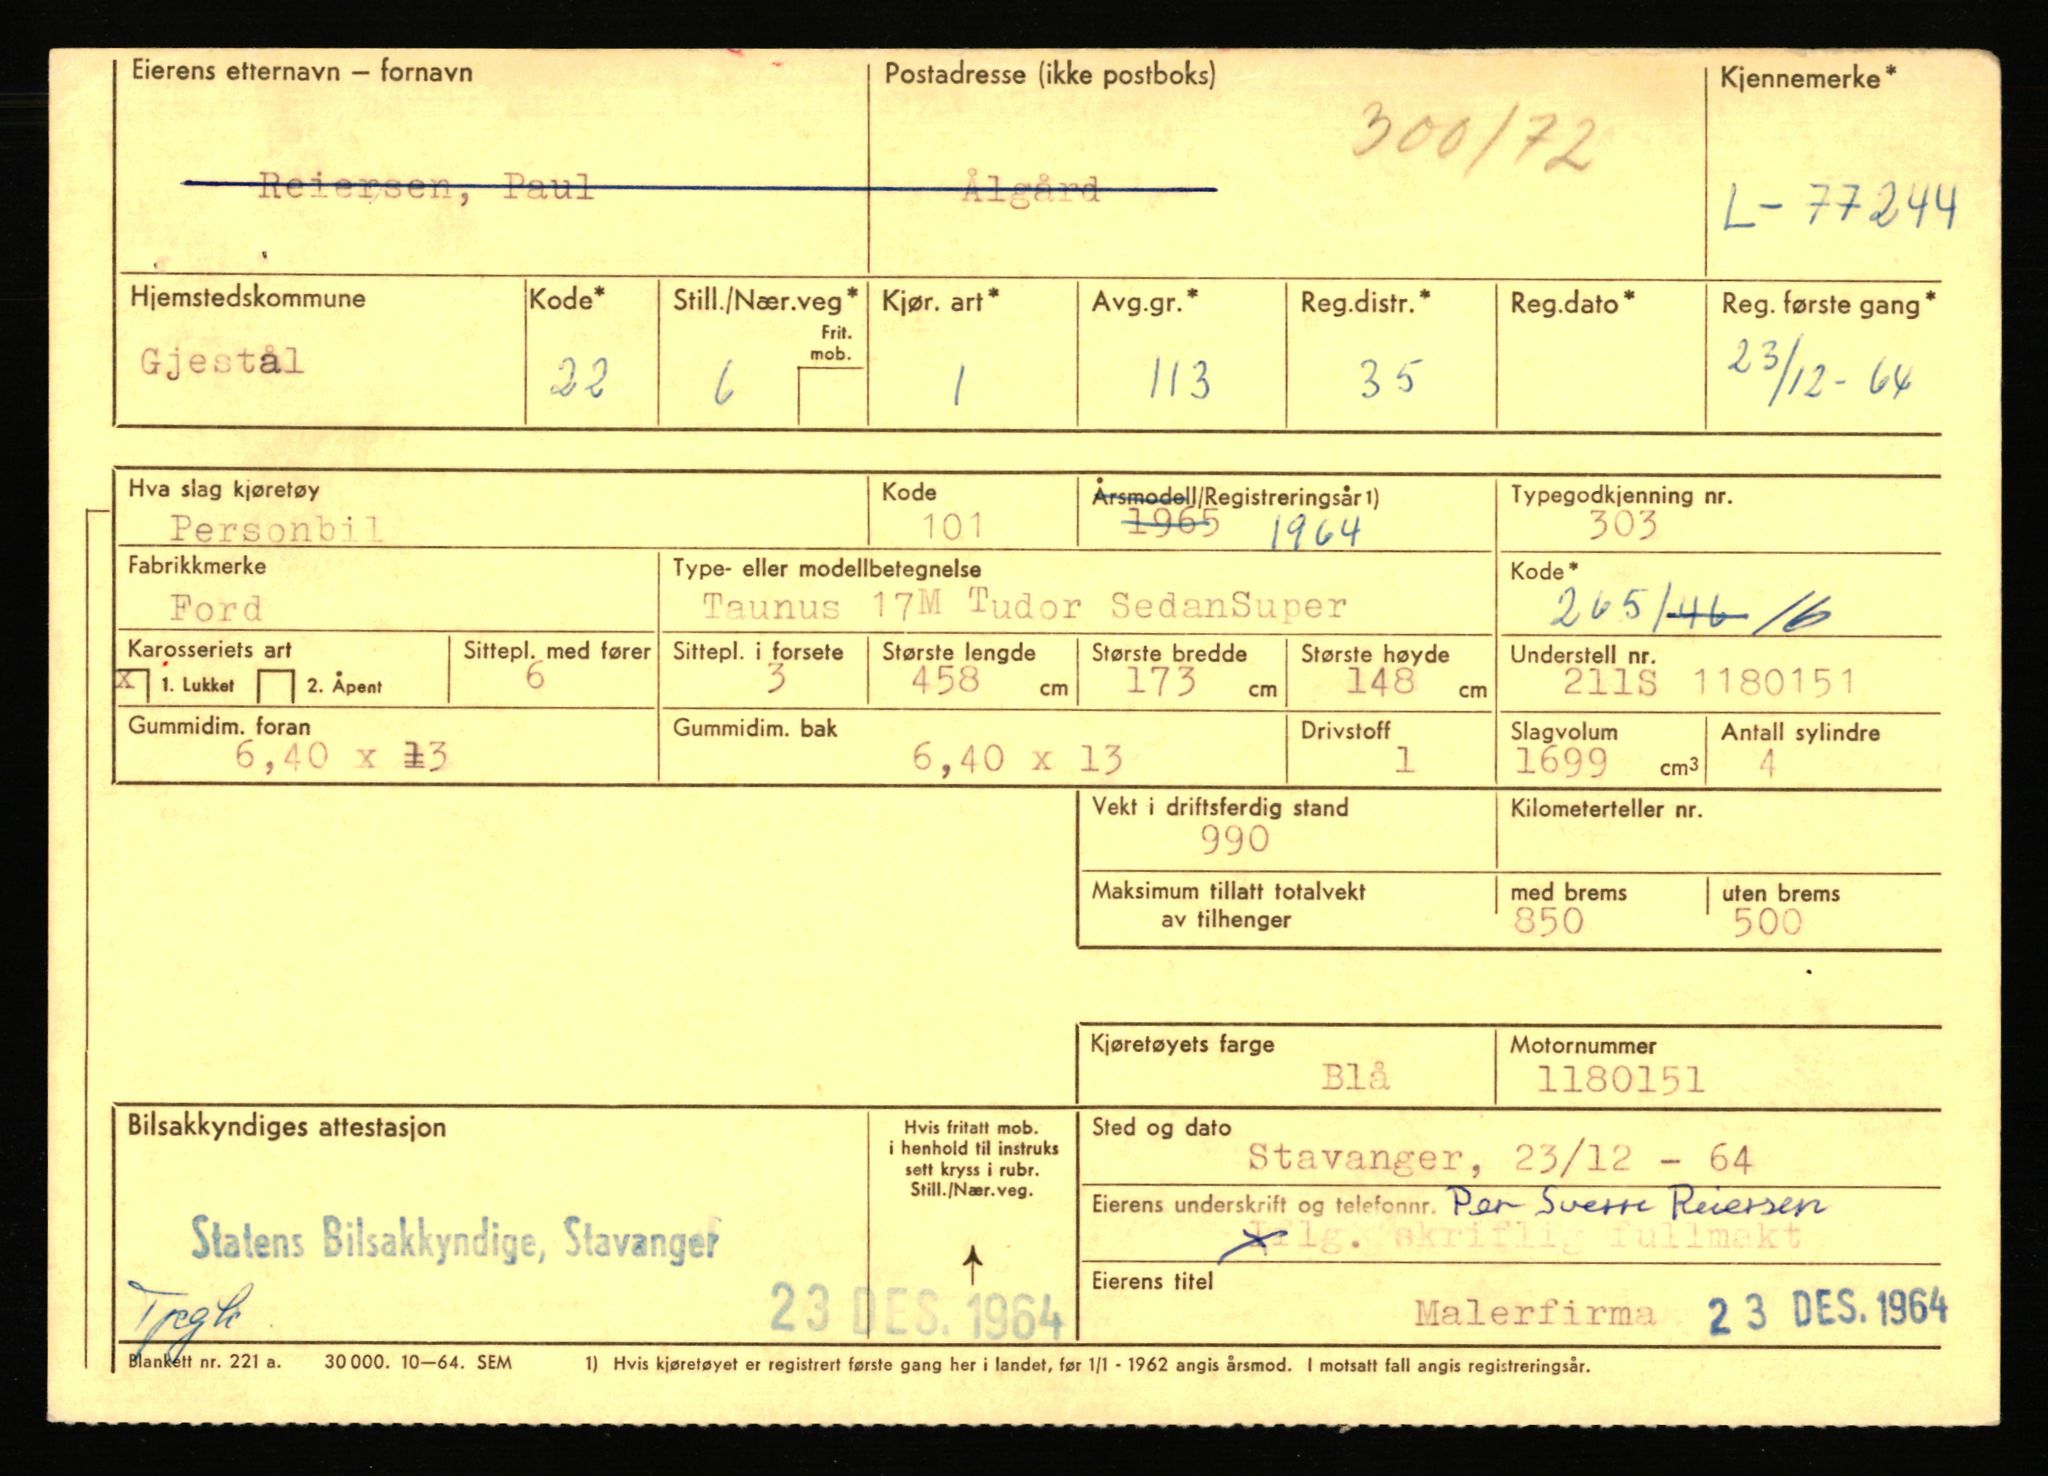 Eierens etternavn – fornavn Postadresse (ikke postboks) Kjennemerke*
300/72
Reiersen, Paul Ålgård L- 77244
Hjemstedskommune Kode* Still./Nær.veg* Kjør. art* Avg.gr.* Reg.distr.* Reg.dato* Reg. første gang*
Frit.
mob.
Gjestål 22 6 1 113 35 23/12- 64
Hva slag kjøretøy Kode Årsmodell/Registreringsår1) Typegodkjenning nr.
Personbil 101 1965 1964 303
Fabrikkmerke Type- eller modellbetegnelse Kode*
Ford Taunus 17M Tudor SedanSuper 265/46 /6
Karosseriets art Sittepl. med fører Sittepl. i forsete Største lengde Største bredde Største høyde Understell nr.
x 1. Lukket 2. Åpent 6 3 458 cm 173 cm 148 cm 211S 1180151
Gummidim. foran Gummidim. bak Drivstoff Slagvolum Antall sylindre
6,40 x 13 6,40 x 13 1 1699 cm3 4
Vekt i driftsferdig stand Kilometerteller nr.
990
Maksimum tillatt totalvekt med brems uten brems
av tilhenger 850 500
Kjøretøyets farge Motornummer
Blå 1180151
Bilsakkyndiges attestasjon Hvis fritatt mob. Sted og dato
i henhold til instruks
sett kryss i rubr.
Still./Nær.veg.
Stavanger, 23/12 - 64
Eierens underskrift og telefonnr. Per Sverre Reiersen
Statens Bilsakkyndige, Stavanger
x Iflg. skriflig fullmakt
Eierens titel
23 DES. 1964 Malerfirma 23 DES. 1964
Blankett nr. 221 a. 30 000. 10–64. SEM 1) Hvis kjøretøyet er registrert første gang her i landet, før 1/1 - 1962 angis årsmod. I motsatt fall angis registreringsår.